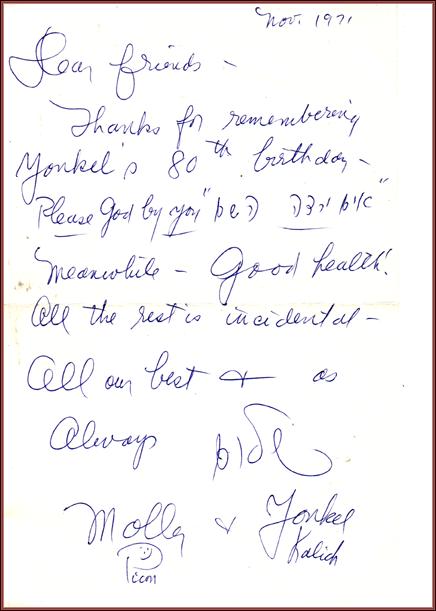 Nov. 1971
Dear friends –
Thanks for remembering
Yonkel's 80th birthday –
Please God by you "אים ירצה השם"
Meanwhile – Good health!
All the rest is incidental –
All our best + as
Always שלום
Molly & Yonkel
Picon Kalich